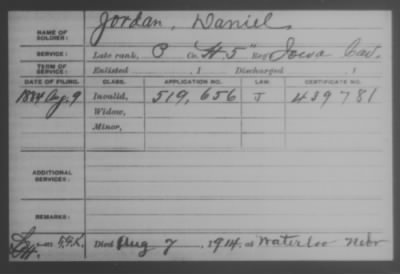 NAME OF SOLDIER: Jordan, Daniel
SERVICE: Late rank, P Co. H. 5" Reg. Iowa Cav.
TERM OF SERVICE: Enlisted , 1 Discharged , 1
DATE OF FILING. CLASS. APPLICATION NO. LAW. CERTIFICATE NO.
1884 Aug. 9 Invalid, 519,656 J 439781
Widow,
Minor,
ADDITIONAL SERVICES:
REMARKS:
Died Aug 7, 1914, at Waterloo Nebr